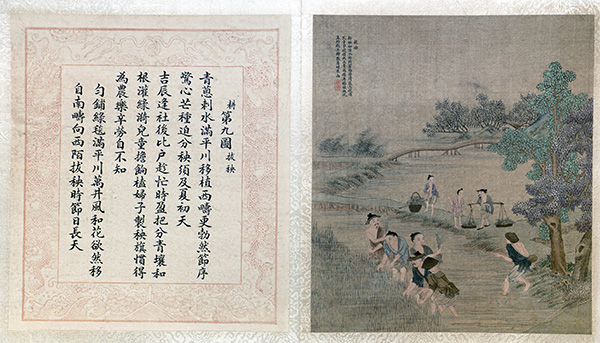 耕 第九圖 拔秧
青葱刺水滿平川移植西疇更勃然節序
驚心芒種迫分秧須及夏初天
吉辰逢社後比戶趁忙時盈把分青壤和
根濯綠漪兒童擔餉榼婦子製秧旗慣得
為農樂辛勞自不知
勻鋪綠毯滿平川萬井風和花欲然移
自南疇向西陌拔秧時節日長天
拔秧